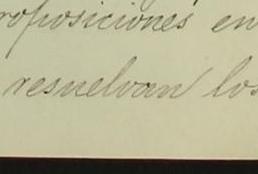 proposiciones en
resuelvan los